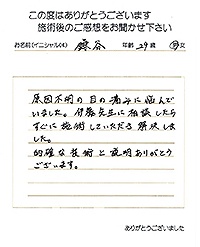 この度はありがとうございます
施術後のご感想をお聞かせ下さい
お名前(イニシャルOK) 鎌谷 年齢 29歳 男 女
原因不明の目の痛みに悩んで
いました。伊藤先生に相談したら
すぐに施術していただき解決しま
した。
的確な技術と説明ありがとう
ございます。
ありがとうございました